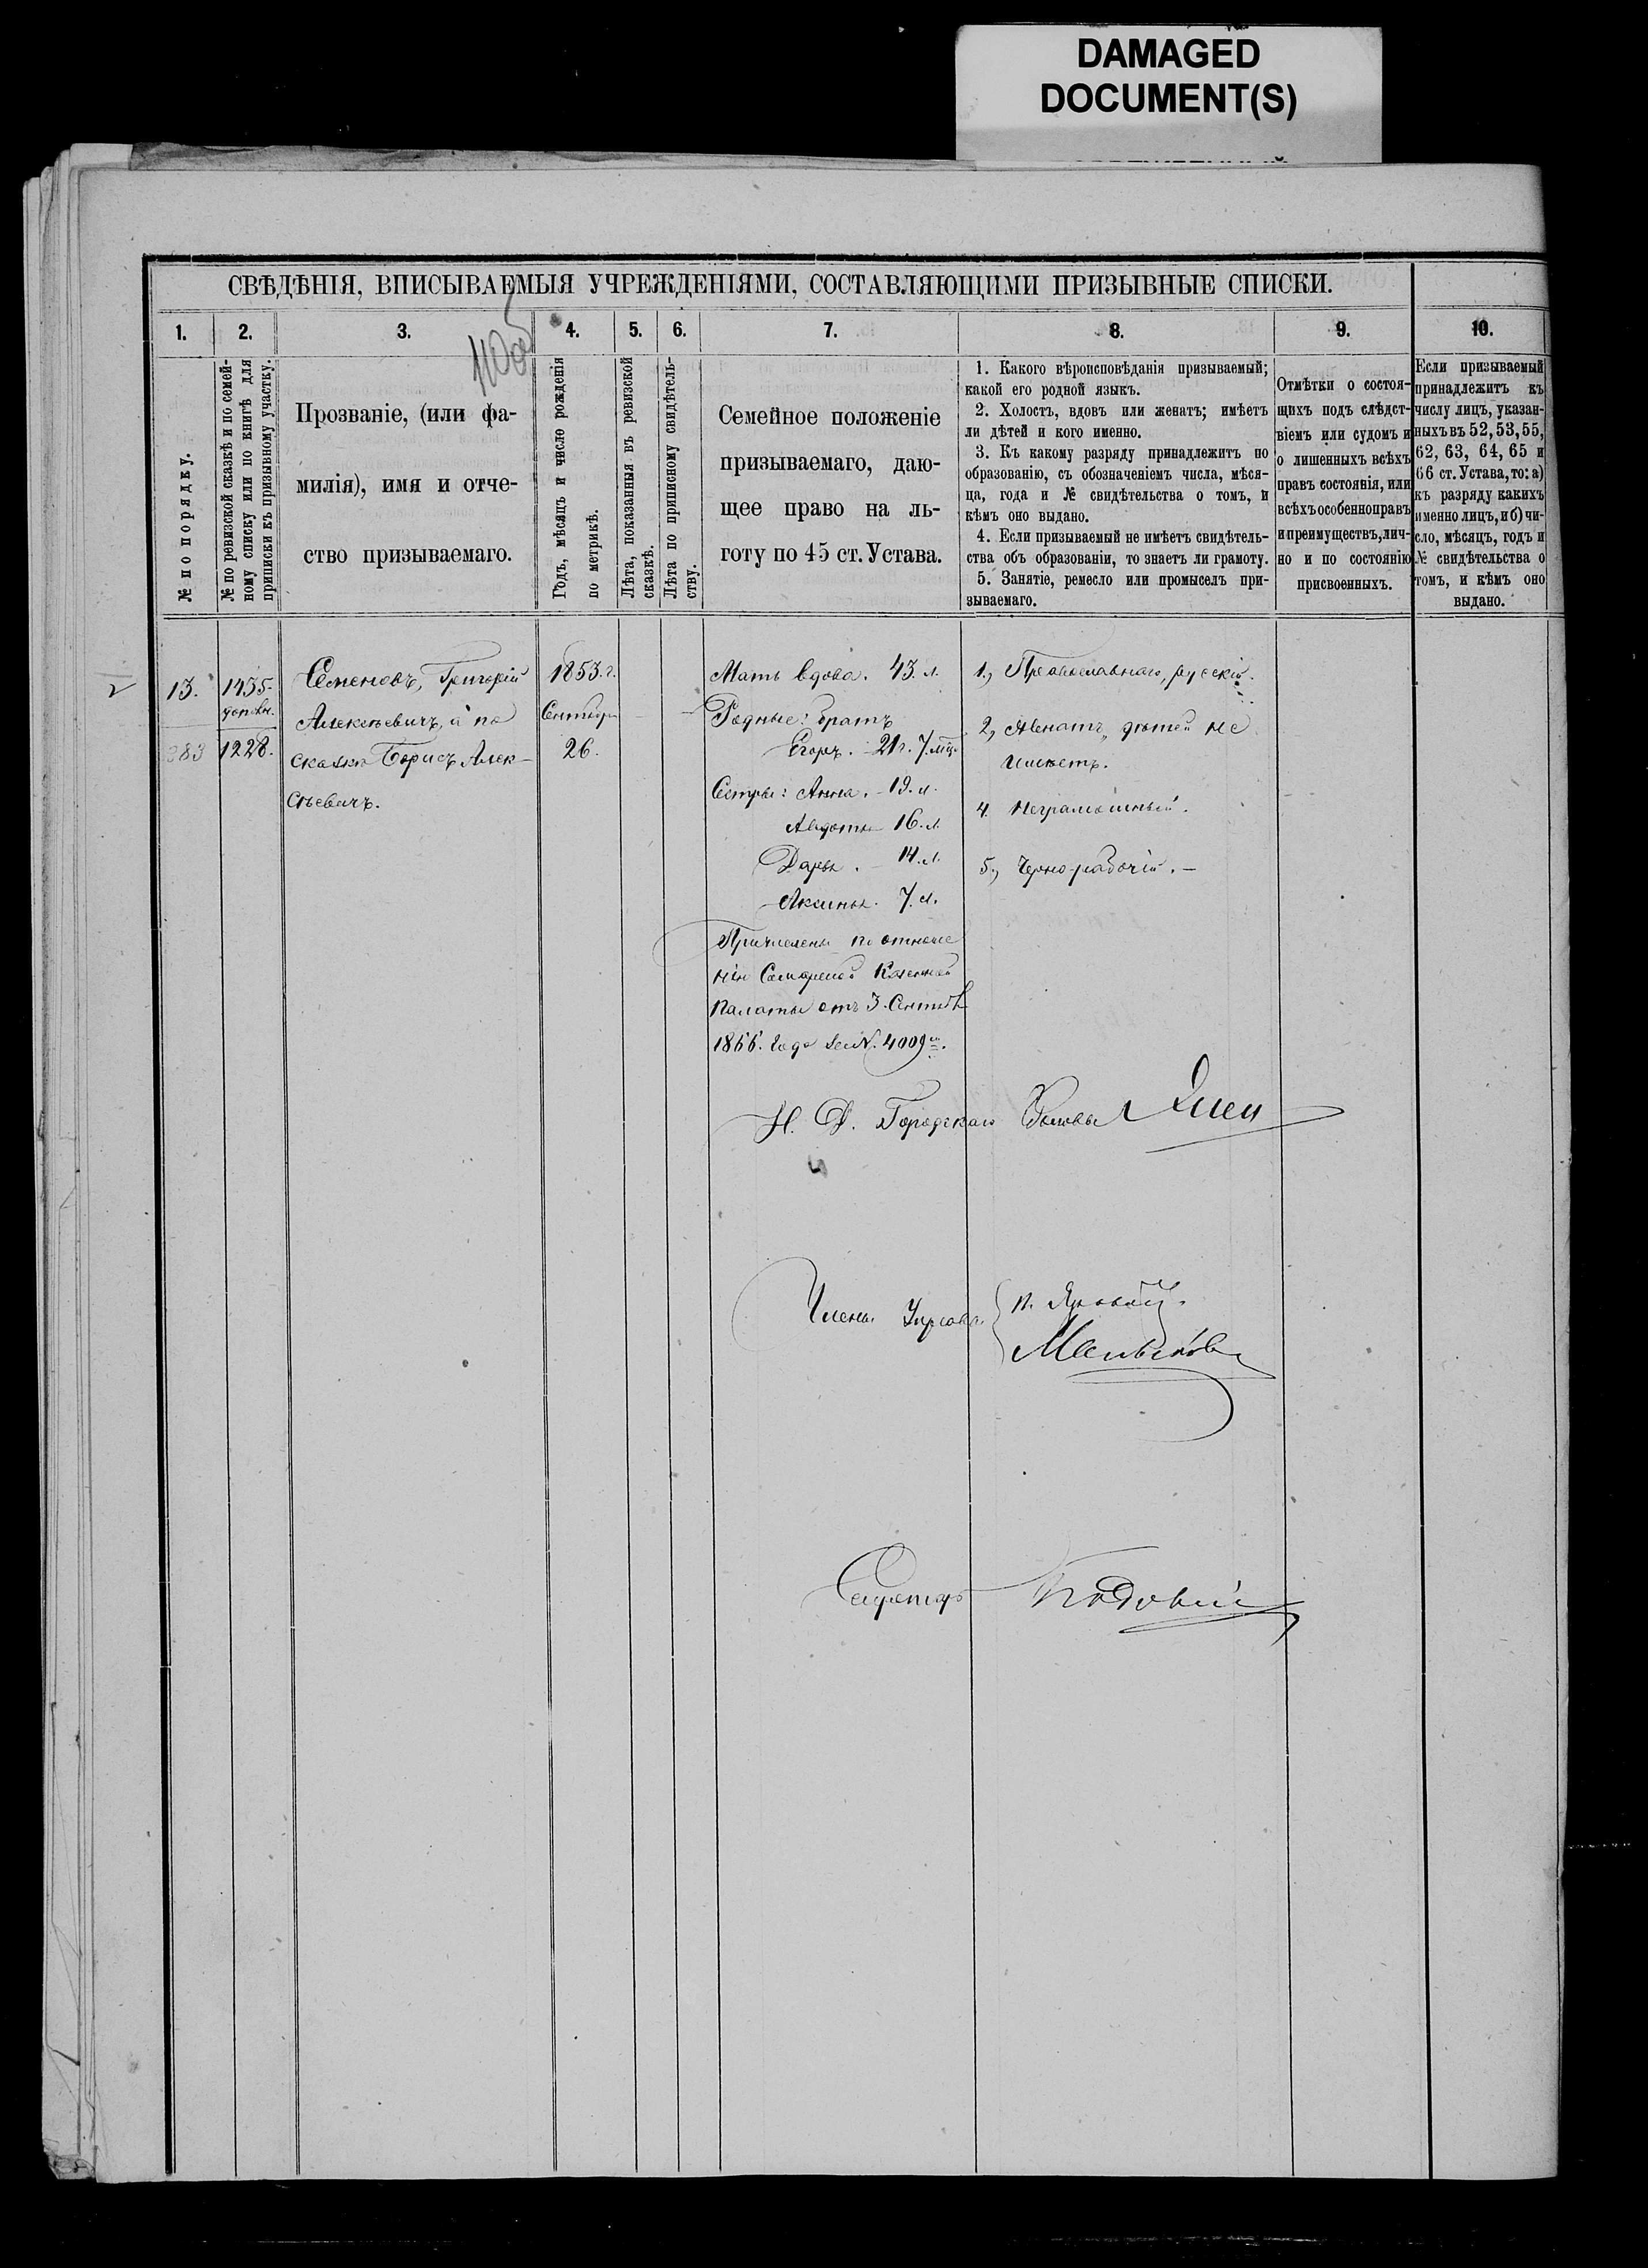 DAMAGED
DOCUMENT(S)
СВѢДѢНІЯ, ВПИСЫВАЕМЫЯ УЧРЕЖДЕНІЯМИ, СОСТАВЛЯЮЩИМИ ПРИЗЫВНЫЕ СПИСКИ.
1.
2.
3.
4.
5.
6.
7.
8.
9.
10.
№ по порядку.
№ по ревизской сказкѣ и по семей-
ному списку или по книгѣ для
приписки къ призывному участку.
Прозваніе, (или фа-
милія), имя и отче-
ство призываемаго.
Годъ, мѣсяцъ и число рожденія
по метрикѣ.
Лѣта, показанныя въ ревизской
сказкѣ.
Лѣта по приписному свидѣтель-
ству.
Семейное положеніе
призываемаго, даю-
щее право на ль-
готу по 45 ст. Устава.
1. Какого вѣроисповѣданія призываемый;
какой его родной языкъ.
2. Холостъ, вдовъ или женатъ; имѣетъ
ли дѣтей и кого именно.
3. Къ какому разряду принадлежитъ по
образованію, съ обозначеніемъ числа, мѣся-
ца, года и № свидѣтельства о томъ, и
кѣмъ оно выдано.
4. Если призываемый не имѣетъ свидѣтель-
ства объ образованіи, то знаетъ ли грамоту.
5. Занятіе, ремесло или промыселъ при-
зываемаго.
Отмѣтки о состоя-
щихъ подъ слѣдст-
віемъ или судомъ и
о лишенныхъ всѣхъ
правъ состоянія, или
всѣхъ особенно правъ
и преимуществъ, лич-
но и по состоянію
присвоенныхъ.
Если призываемый
принадлежитъ къ
числу лицъ, указан-
ныхъ въ 52, 53, 55,
62, 63, 64, 65 и
66 ст. Устава, то: а)
къ разряду какихъ
именно лицъ, и б) чи-
сло, мѣсяцъ, годъ и
№ свидѣтельства о
томъ, и кѣмъ оно
выдано.
13.
383
1435.
дополн.
1228.
Семеновъ, Григорій
Алексѣевичъ, а по
сказкѣ Борисъ Алек-
сѣевичъ.
1853. г.
Сентября
26.
Мать вдова. 43. л.
Родные: братъ
Егоръ. 21 г. 7. мѣц.
Сестры: Анна. 19. л.
Авдотья 16. л.
Дарья. 14. л.
Аксинья. 7. л.
Причислены по отноше
нію Самарской Казенной
Палаты отъ 3. Сентяб
1866. года за №. 4009 м.
1., Православнаго, русскій.
2, Женатъ, дѣтей не
имѣетъ.
4. Неграмотный.
5., Чернорабочій. —
И. Д. Городскаго Головы
Члены Управы
Мельников
Секретарь